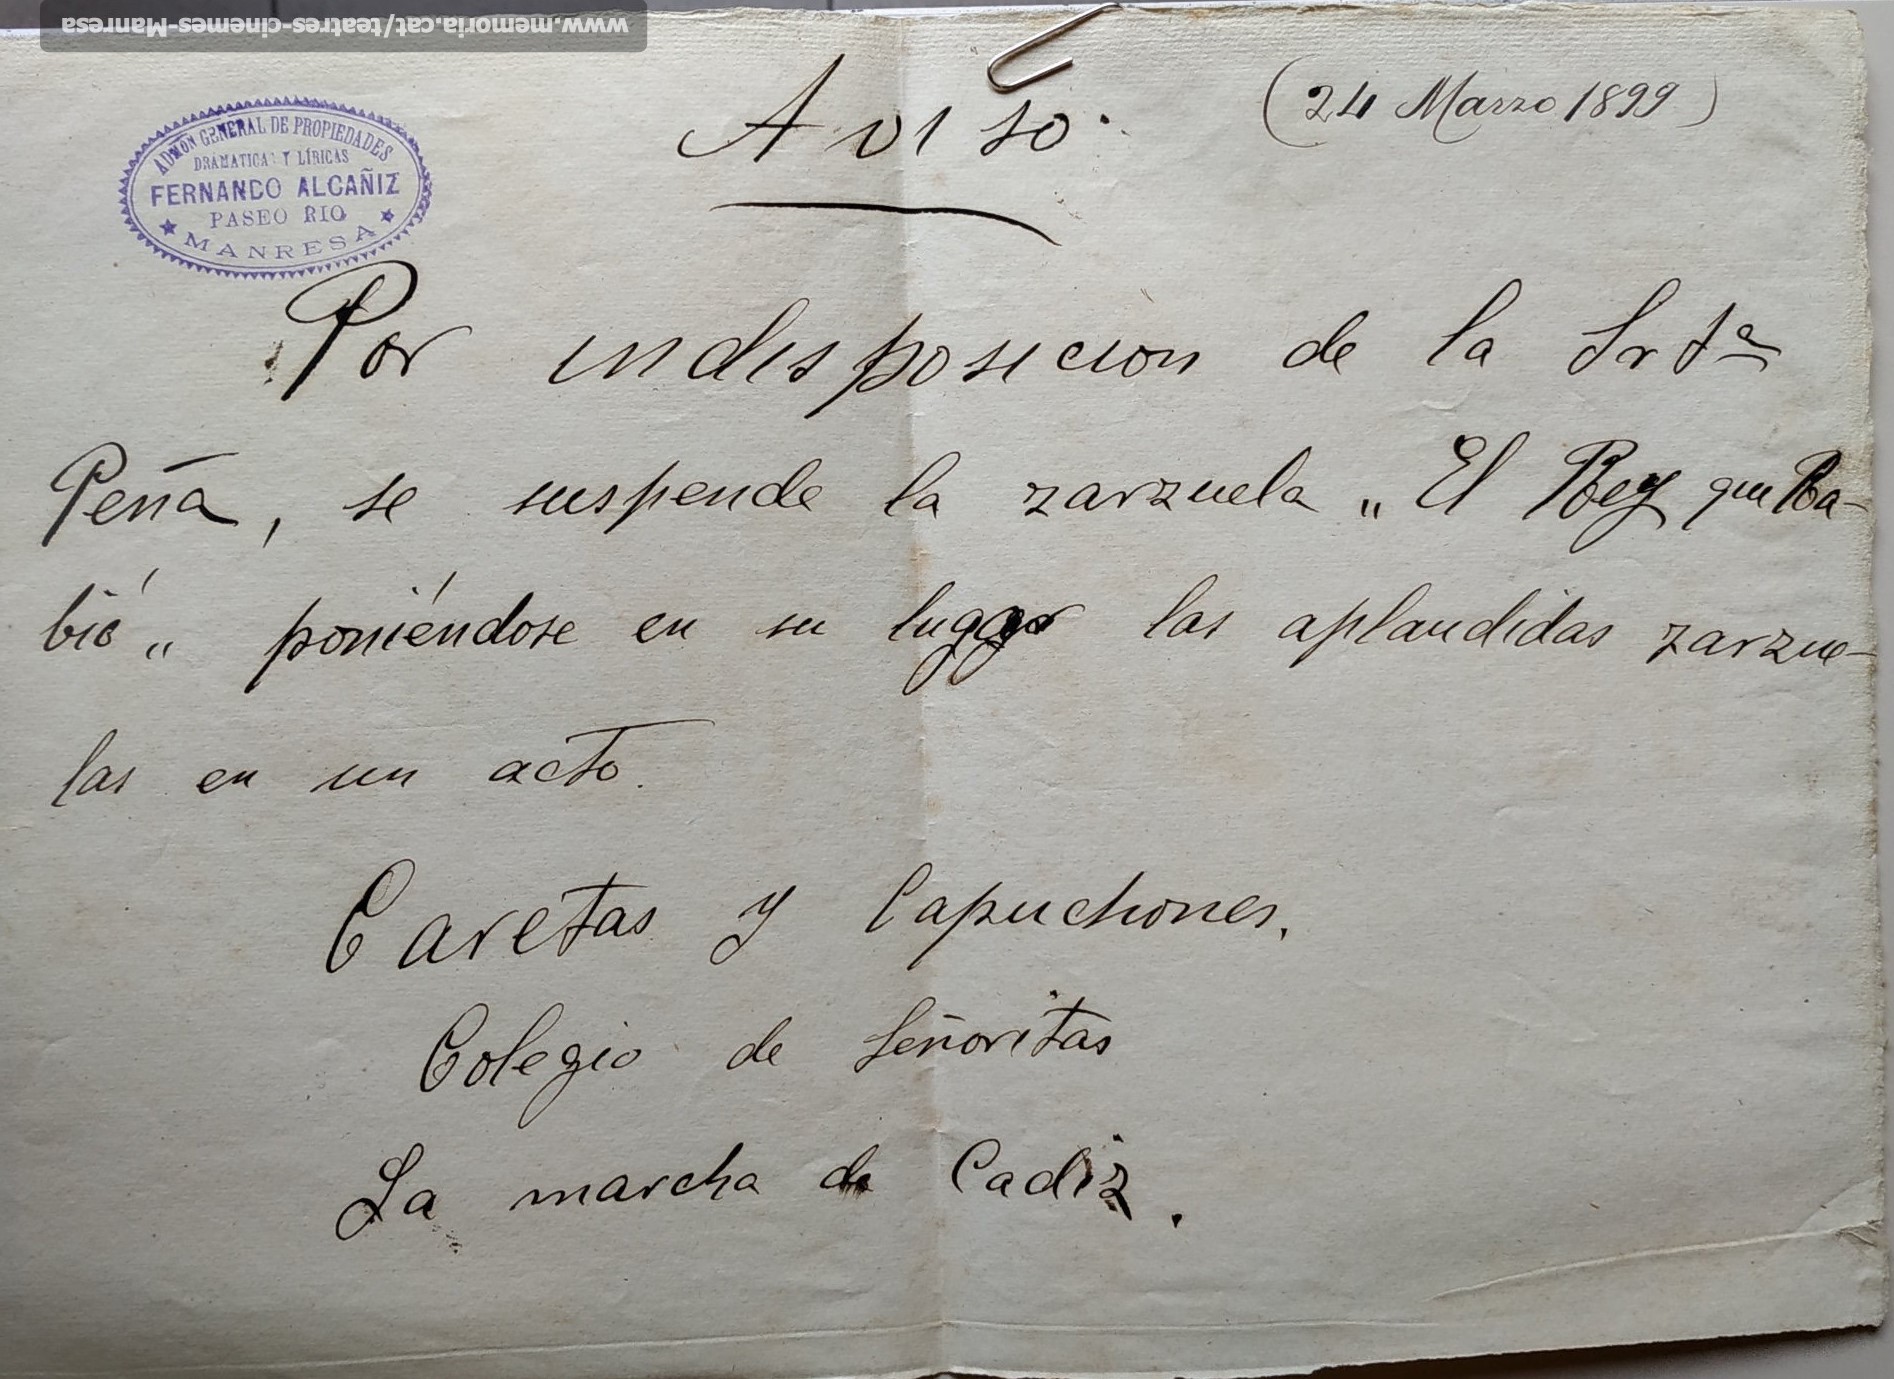 www.memoria.cat/teatres-cinemes-Manresa
Aviso.
(24 Marzo 1899)
ADMÓN GENERAL DE PROPIEDADES
DRAMATICAS Y LÍRICAS
FERNANDO ALCAÑIZ
PASEO RIO
MANRESA
Por indisposicion de la Srtª
Peña, se suspende la zarzuela „El Rey que Ra-
bió„ poniéndose en su lugar las aplaudidas zarzue-
las en un acto.
Caretas y Capuchones.
Colegio de Señoritas
La marcha de Cadiz.